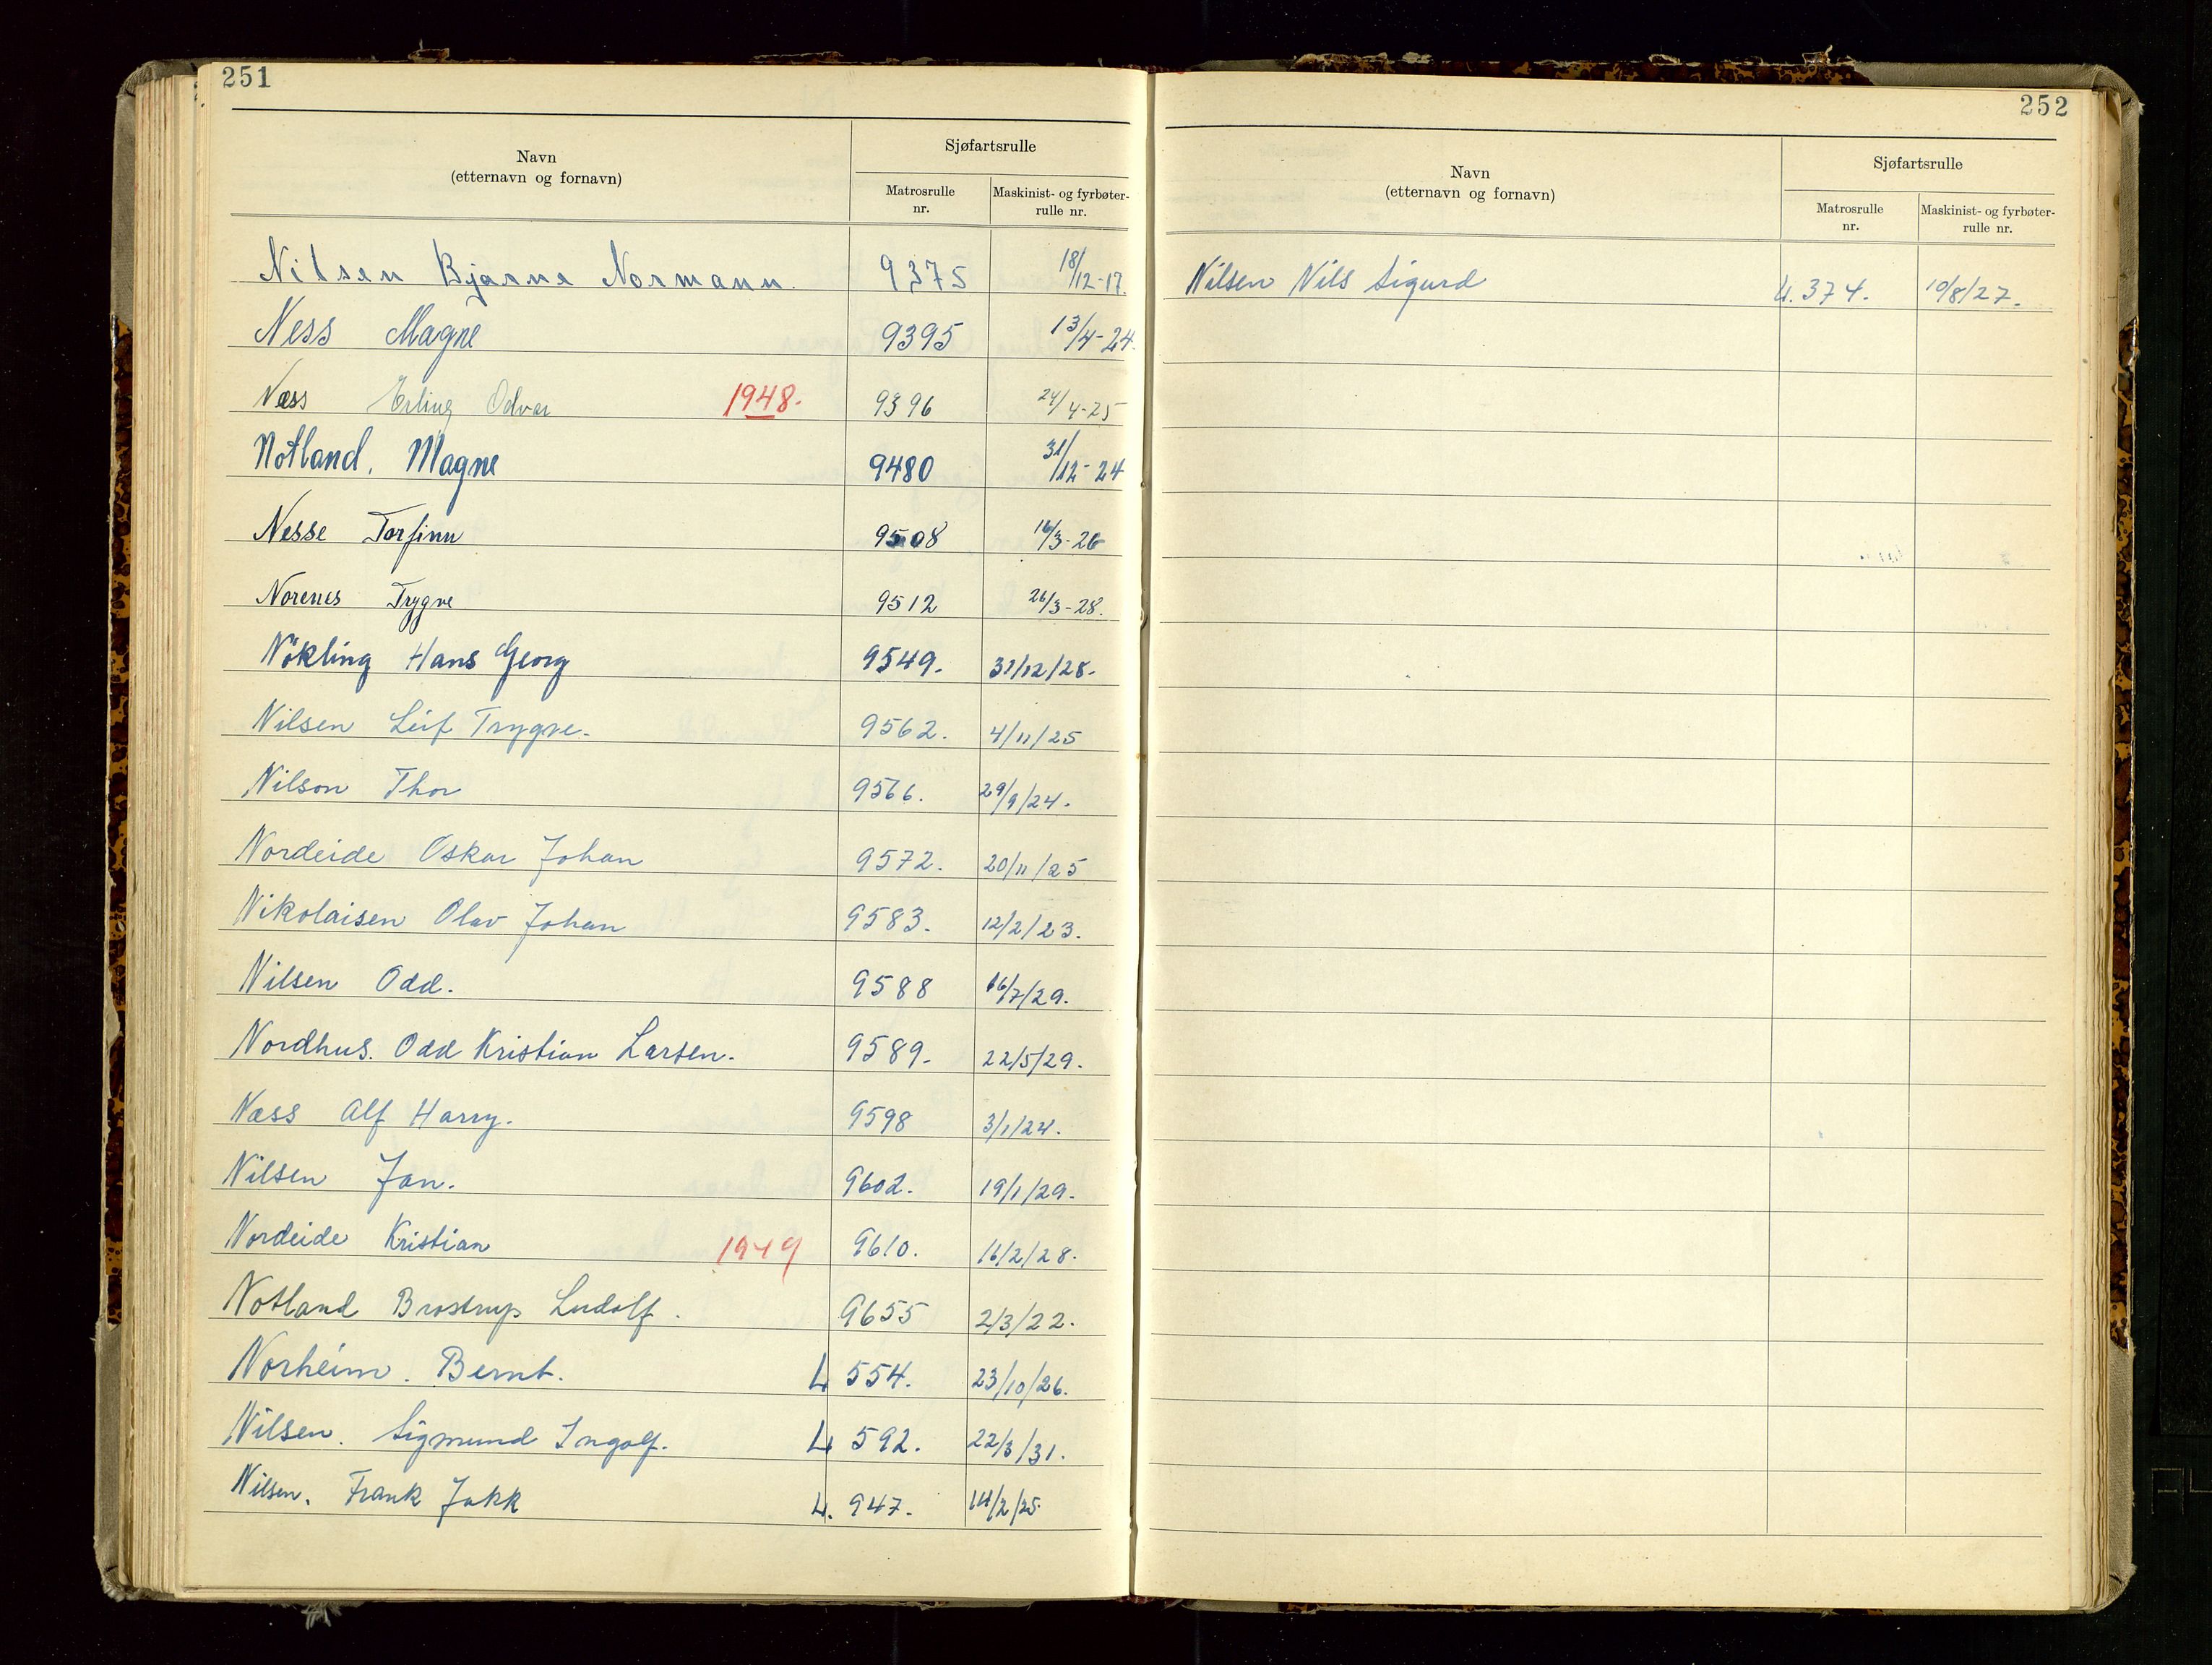 251
Navn
(etternavn og fornavn)
Sjøfartsrulle
Matrosrulle
nr.
Maskinist- og fyrbøter-
rulle nr.
Nilsen Bjarne Normann. 9375 18/12-17.
Ness Magne 9395 13/4-24.
Næss Erling Odvar 1948. 9396 24/4-25
Notland. Magne 9480 31/12-24
Nesse Torfinn 9508 16/3-26
Norenes Trygve 9512 26/3-28.
Nökling Hans Georg 9549. 31/12/28.
Nilsen Leif Trygve. 9562. 4/11/25
Nilson Thor 9566. 29/9/24.
Nordeide Oskar Johan 9572. 20/11/25
Nikolaisen Olav Johan 9583. 12/2/23.
Nilsen Odd. 9588 16/7/29.
Nordhus. Odd Kristian Larsen. 9589. 22/5/29.
Næss Alf Harry. 9598 3/1/24.
Nilsen Jan. 9602. 19/1/29.
Nordeide Kristian 1949 9610. 16/2/28.
Notland Brostrup Ludolf. 9655 2/3/22.
Norheim. Bernt. L 554. 23/10/26.
Nilsen. Sigmund Ingolf. L 592. 22/3/31.
Nilsen. Frank Jakk L. 947. 14/2/25.
252
Navn
(etternavn og fornavn)
Sjøfartsrulle
Matrosrulle
nr.
Maskinist- og fyrbøter-
rulle nr.
Nilsen Nils Sigurd 374. 10/8/27.